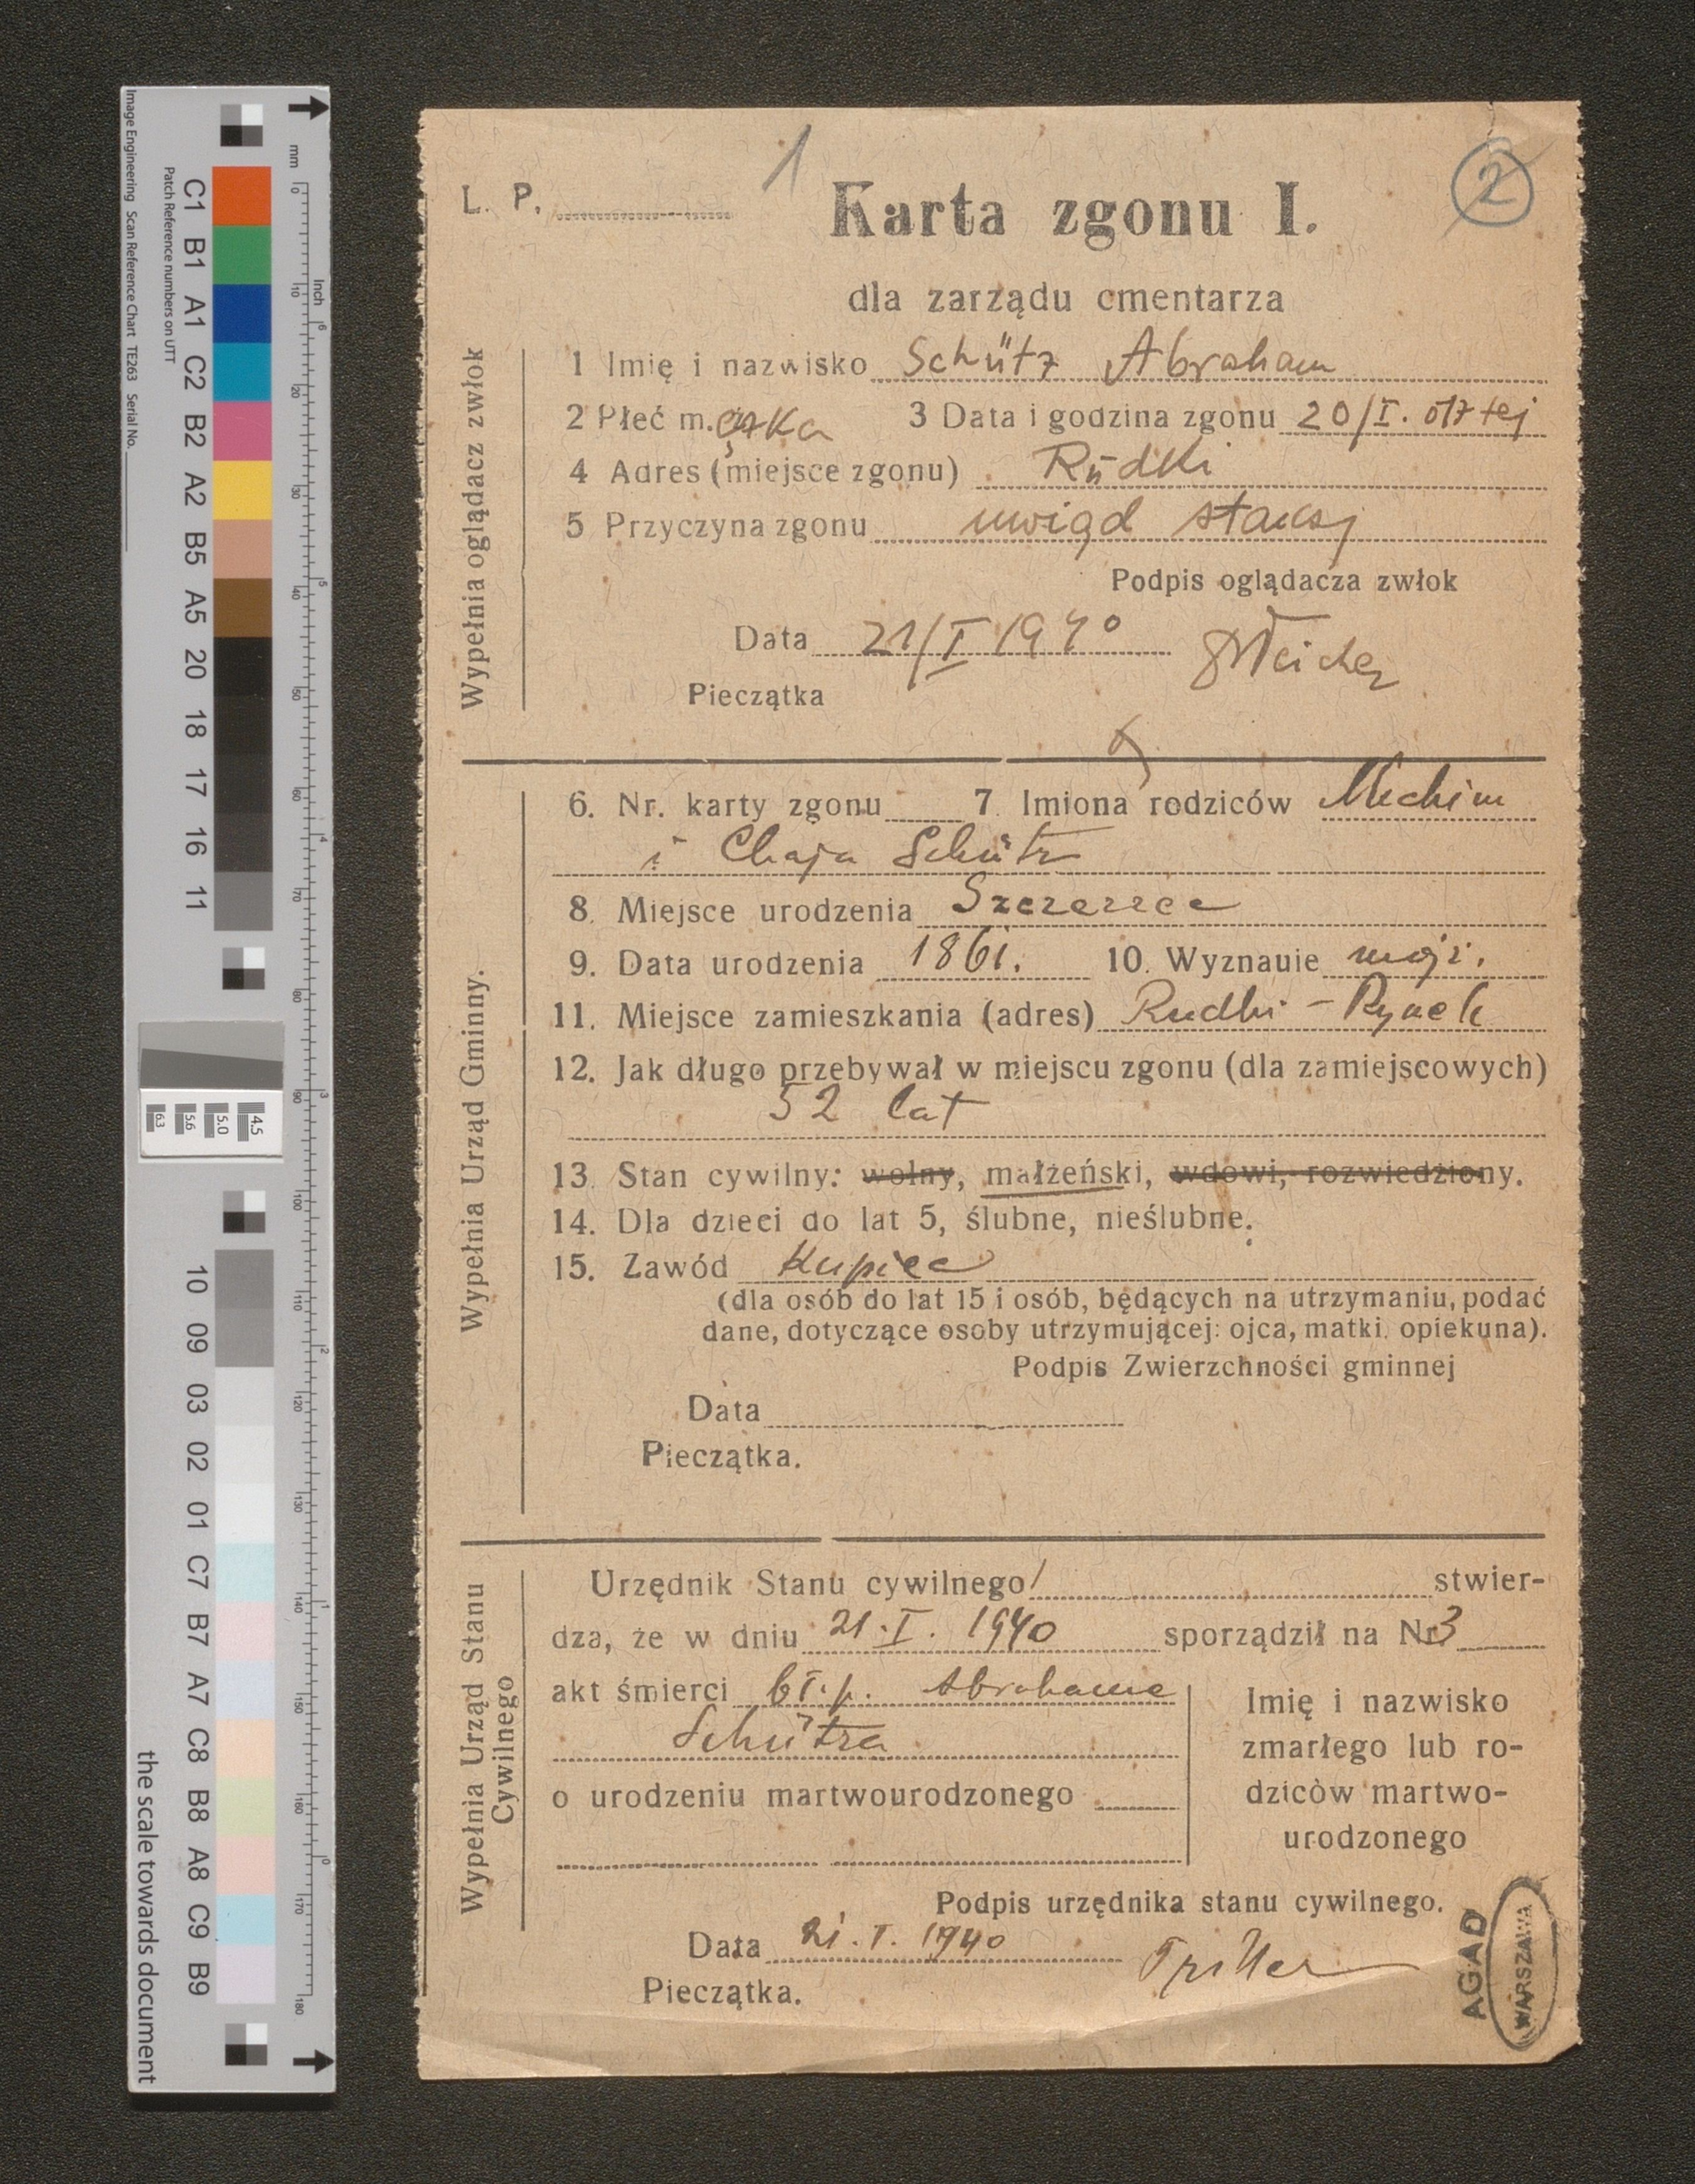 1
2
L. P.
Karta zgonu I.
dla zarządu cmentarza
Wypełnia oglądacz zwłok
1 Imię i nazwisko Schütz Abraham
2 Płeć m. 3 Data i godzina zgonu 20/I. o 17 tej
4 Adres (miejsce zgonu) Rŭdki
5 Przyczyna zgonu uwiąd starczy
Podpis oglądacza zwłok
Data 21/I 1940
Pieczątka
Wypełnia Urząd Gminny.
6. Nr. karty zgonu 7. Imiona rodziców
i Chaja Schütz
8. Miejsce urodzenia Szczerzec
9. Data urodzenia 1861. 10. Wyznauie mojż.
11. Miejsce zamieszkania (adres) Rudki - Rynek
12. Jak długo przebywał w miejscu zgonu (dla zamiejscowych)
52 lat
13. Stan cywilny: wolny, małżeński, wdowi, rozwiedziony.
14. Dla dzieci do lat 5, ślubne, nieślubne.
15. Zawód Kupiec
(dla osób do lat 15 i osób, będących na utrzymaniu, podać
dane, dotyczące osoby utrzymującej: ojca, matki, opiekuna).
Podpis Zwierzchności gminnej
Data
Pieczątka.
Wypełnia Urząd Stanu
Cywilnego
Urzędnik Stanu cywilnego/ stwier-
dza, że w dniu 21.I. 1940 sporządził na Nr 3
akt śmierci bł.p. Abrahama
Schütza
o urodzeniu martwourodzonego
Imię i nazwisko
zmarłego lub ro-
dziców martwo-
urodzonego
Podpis urzędnika stanu cywilnego.
Data 21.I. 1940
Pieczątka.
AGAD
WARSZAWA
Image Engineering Scan Reference Chart TE263 Serial No.
Patch Reference numbers on UTT
mm
Inch
C1 B1 A1 C2 B2 A2 B5 A5 20 18 17 16 11
10 09 03 02 01 C7 B7 A7 C8 B8 A8 C9 B9
0 10 20 30 40 50 60 70 80 90 100 110 120 130 140 150 160 170 180
6 5 4 3 2 1 0
4.5
5.0
5.6
6.3
the scale towards document